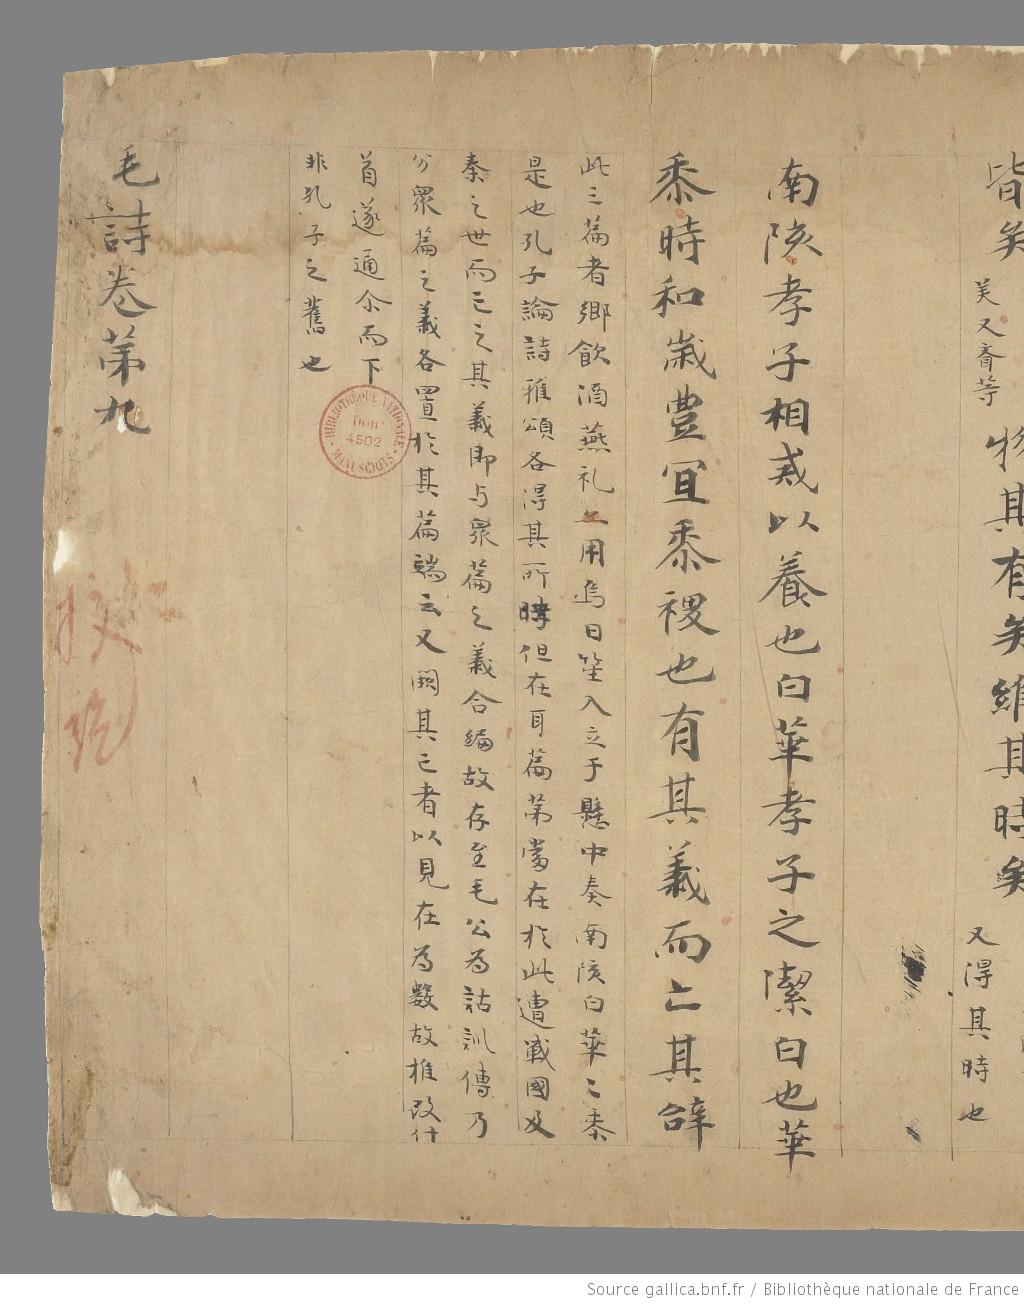 皆矣 美又齊等 物其有矣維其時矣 又得其時也
南陔孝子相戒以養也白華孝子之潔白也華
黍時和歲豊宜黍稷也有其義而亡其辝
此三篇者鄉飲酒燕礼用焉曰笙入立于懸中奏南陔白華〻黍
是也孔子論詩雅頌各得其所時但在耳篇第當在於此遭戰國及
秦之世而亡之其義即与眾篇之義合編故存至毛公為詁訓傳乃
分眾篇之義各置於其篇端云又闕其亡者以見在為數故推改什
首遂通尒而下
非孔子之舊也
毛詩卷第九
BIBLIOTHÈQUE NATIONALE
Don
4502
MANUSCRITS
Source gallica.bnf.fr / Bibliothèque nationale de France